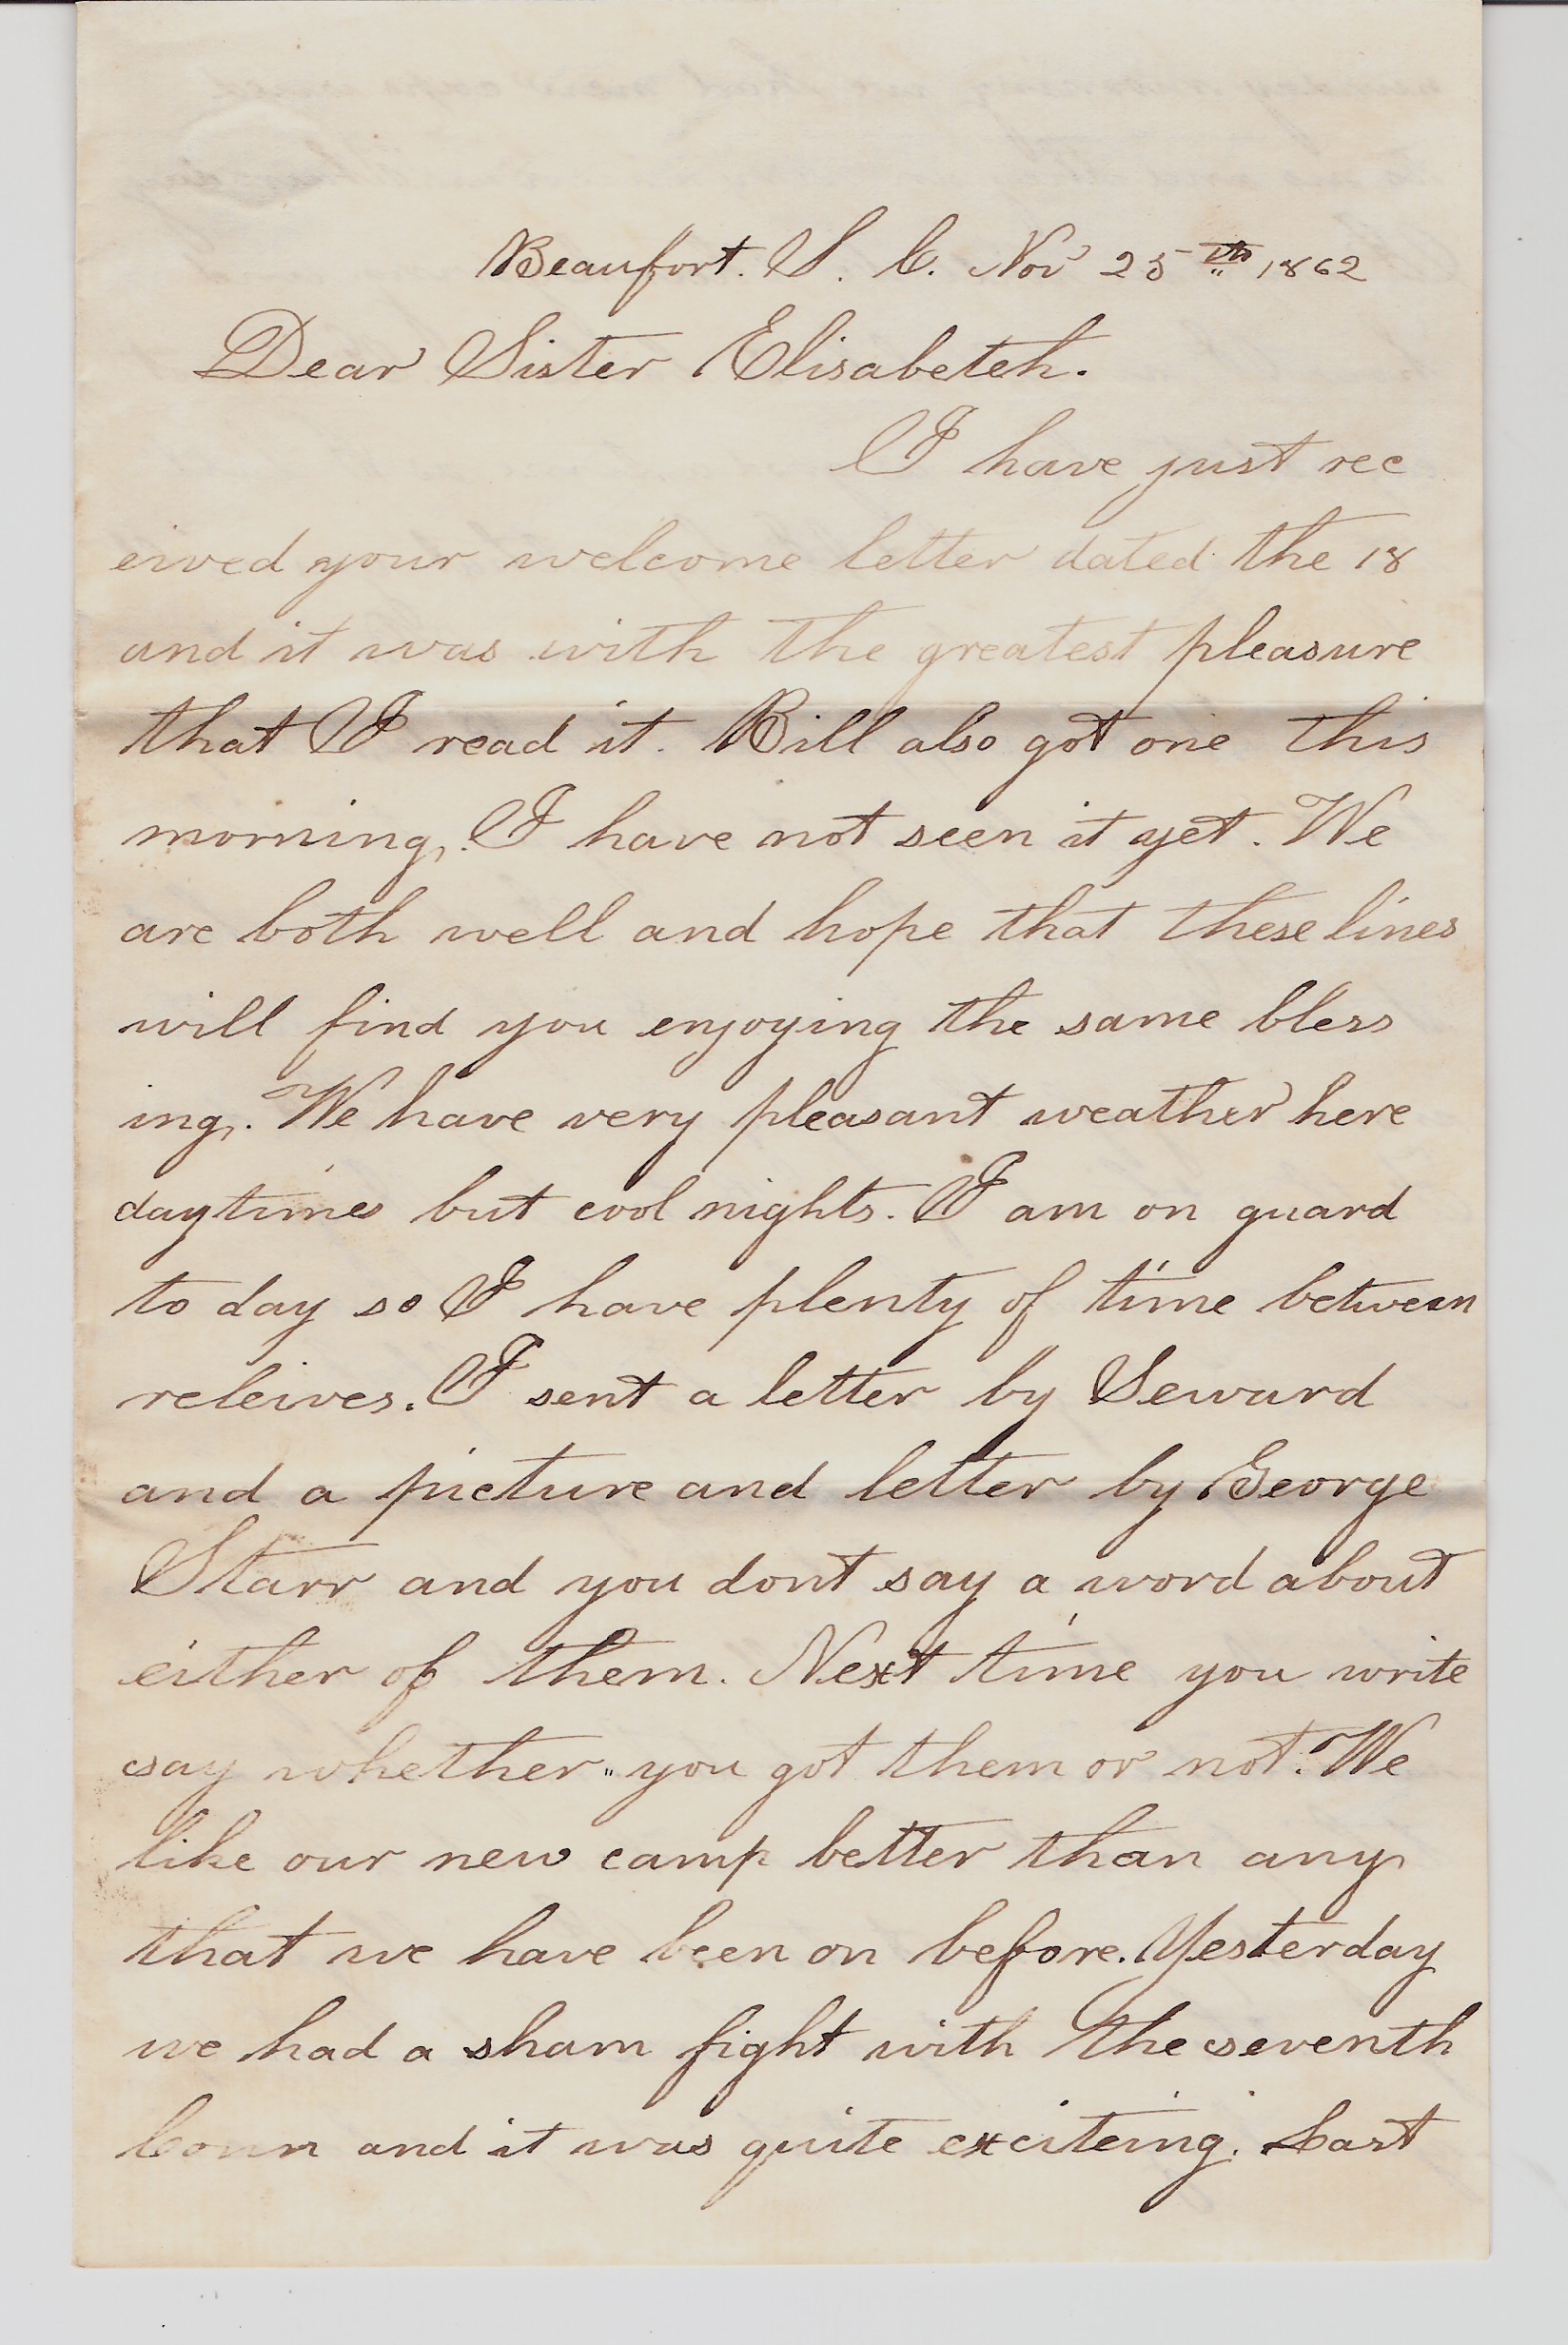 Beaufort. S. C. Nov 25th 1862
Dear Sister Elisabeteh.
I have just rec
eived your welcome letter dated the 18
and it was with the greatest pleasure
that I read it. Bill also got one this
morning. I have not seen it yet. We
are both well and hope that these lines
will find you enjoying the same bless
ing. We have very pleasant weather here
daytimes but cool nights. I am on guard
to day so I have plenty of time between
releives. I sent a letter by Seward
and a picture and letter by George
Starr and you dont say a word about
either of them. Next time you write
say whether you got them or not. We
like our new camp better than any
that we have been on before. Yesterday
we had a sham fight with the seventh
Conn and it was quite exciteing. Last